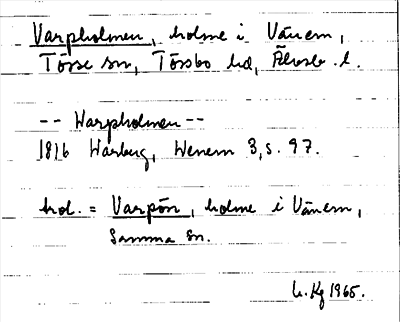 Varpholmen, holme i Vänern,
Tösse sn, Tössbo hd, Älvsb. l.
-- Warpholmen --
1816 Warberg, Wenern 3, s. 97.
hol. = Varpön, holme i Vänern,
Samma sn.
1965.